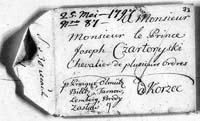 25. Mai - 1797
Nro 37
A Monsieur
Monsieur le Prince
Joseph Czartoryski
Chevalier de plusieurs ordres
à Korzec
p. Prague, Olmütz
Bilitz, Tarnow
Lemberg, Brody
Zaslow